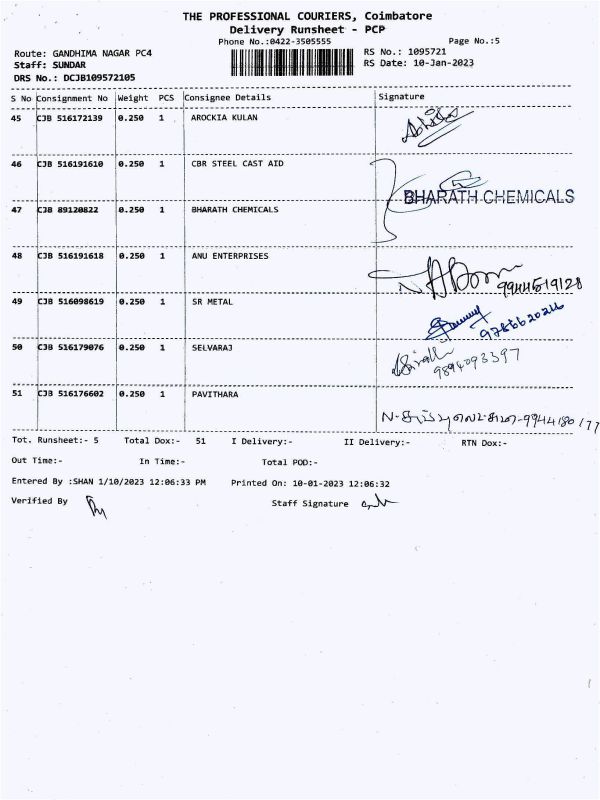 THE PROFESSIONAL COURIERS, Coimbatore
Delivery Runsheet - PCP
Phone No.:0422-3505555 Page No.:5
Route: GANDHIMA NAGAR PC4 RS No.: 1095721
Staff: SUNDAR RS Date: 10-Jan-2023
DRS No.: DCJB109572105
S No Consignment No Weight PCS Consignee Details Signature
45 CJB 516172139 0.250 1 AROCKIA KULAN
46 CJB 516191610 0.250 1 CBR STEEL CAST AID
BHARATH CHEMICALS
47 CJB 89120822 0.250 1 BHARATH CHEMICALS
48 CJB 516191618 0.250 1 ANU ENTERPRISES
9944519128
49 CJB 516098619 0.250 1 SR METAL
9786620214
50 CJB 516179076 0.250 1 SELVARAJ
9894093397
51 CJB 516176602 0.250 1 PAVITHARA
Tot. Runsheet:- 5 Total Dox:- 51 I Delivery:- II Delivery:- RTN Dox:-
Out Time:- In Time:- Total POD:-
Entered By :SHAN 1/10/2023 12:06:33 PM Printed On: 10-01-2023 12:06:32
Verified By Staff Signature